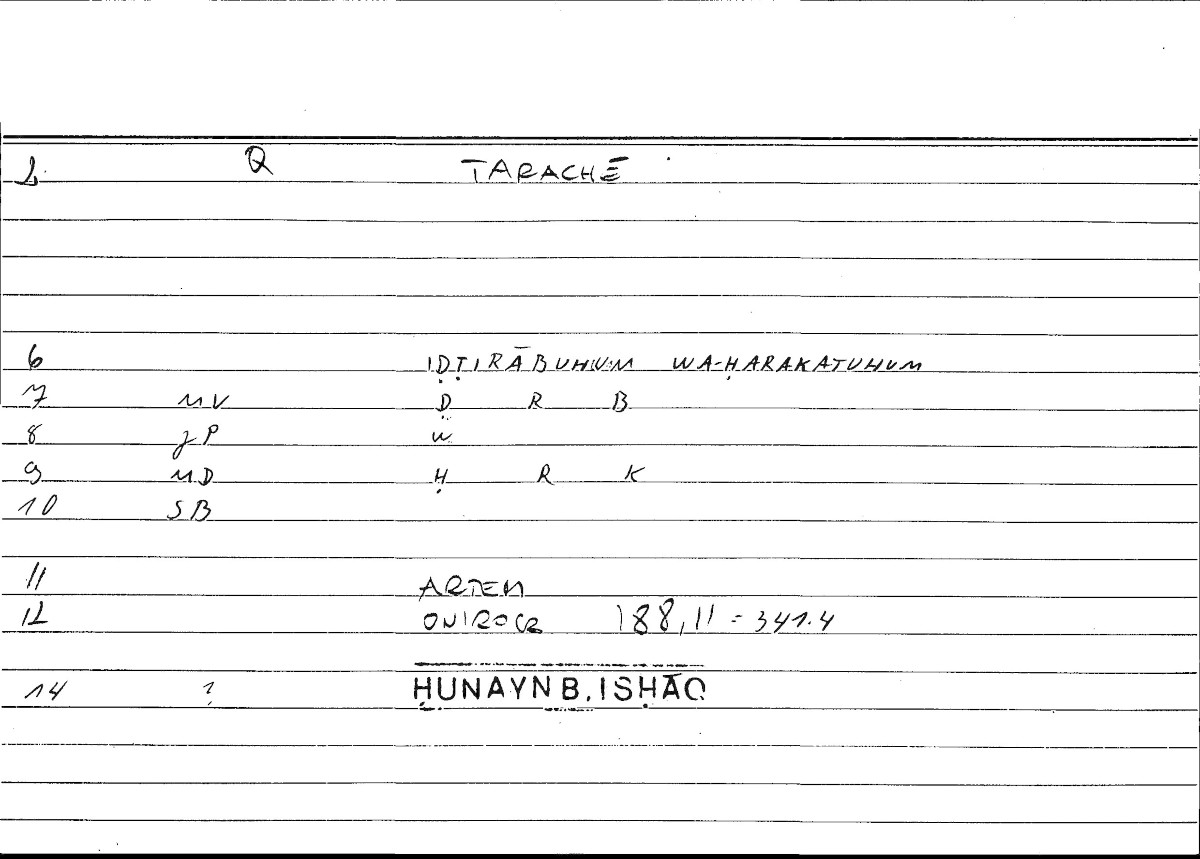 1. Q TARACHĒ
6 IḌṬIRĀBUHUM WA-ḤARAKATUHUM
7 MV Ḍ R B
8 JP W
9 MD Ḥ R K
10 SB
11 ARTEM
12 ONIROCR 188,11 = 341.4
14 ? ḤUNAYN B. ISḤĀQ